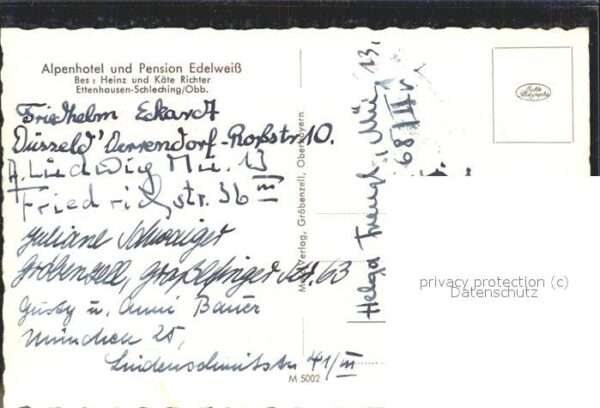 Alpenhotel und Pension Edelweiß
Bes: Heinz und Käte Richter
Ettenhausen-Schleching/Obb.
Friedhelm Eckardt
Düsseld' Derrendorf-Roßstr 10.
A. Ludwig Mü. 13
Friedrichstr. 36 III
Juliane Schwaiger
Gröbenzell, Graßlfinger Str. 63
Gusty u. Anni Bauer
München 25,
Lindenschmitstr 41/III
M 5002
Verlag, Gröbenzell, Oberbayern
Helga Mü 13,
68
Echte Fotografie
privacy protection (c)
Datenschutz